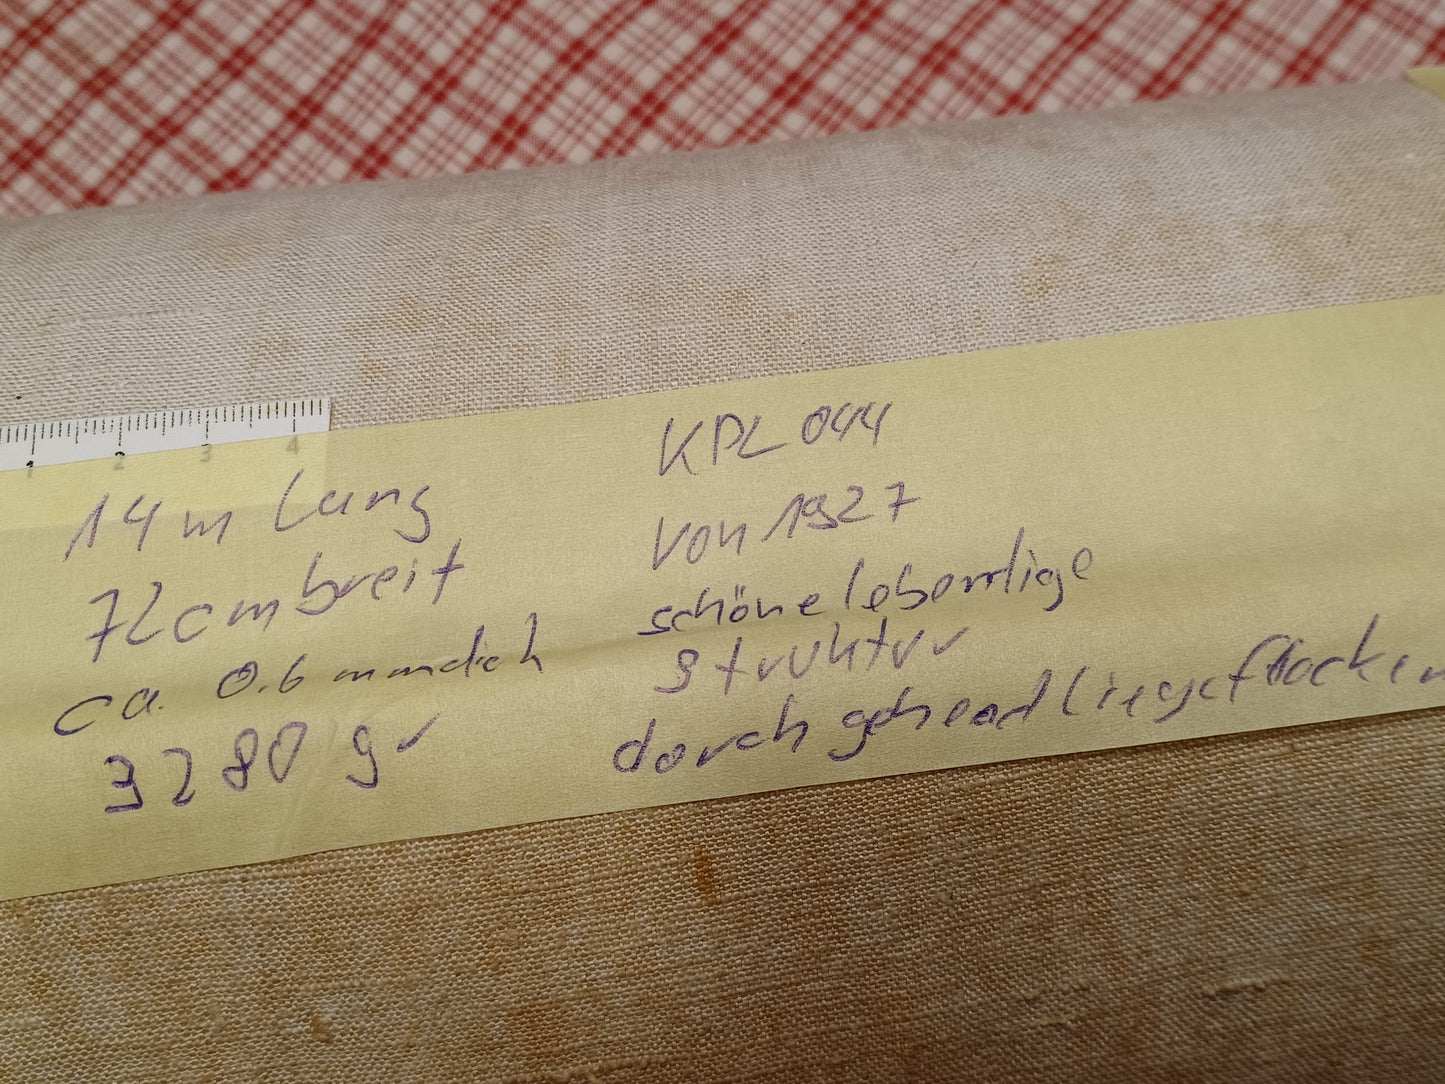 1 2 3 4
14m lang
72cm breit
ca. 0.6 mm dick
3280 gr
KPL 044
von 1927
schöne lebendige
Struktur
durchgehend liegefflecken